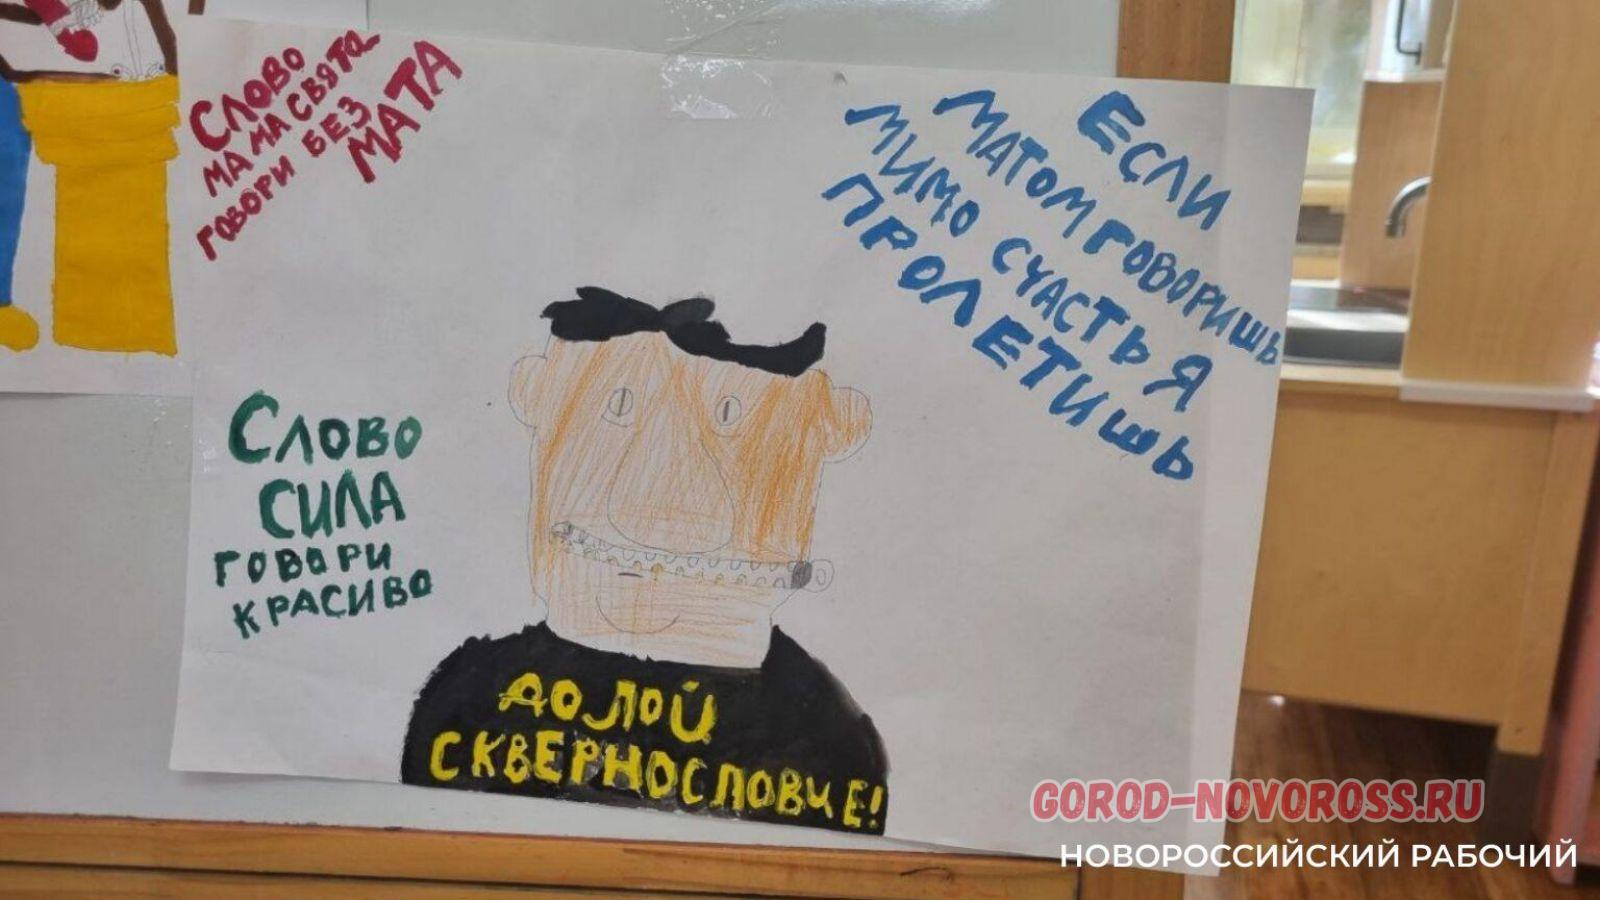 СЛОВО
МАМА СВЯТО
ГОВОРИ БЕЗ
МАТА
ЕСЛИ
МАТОМ ГОВОРИШЬ
МИМО СЧАСТЬЯ
ПРОЛЕТИШЬ
СЛОВО
СИЛА
ГОВОРИ
КРАСИВО
ДОЛОЙ
СКВЕРНОСЛОВИЕ!
GOROD-NOVOROSS.RU
НОВОРОССИЙСКИЙ РАБОЧИЙ